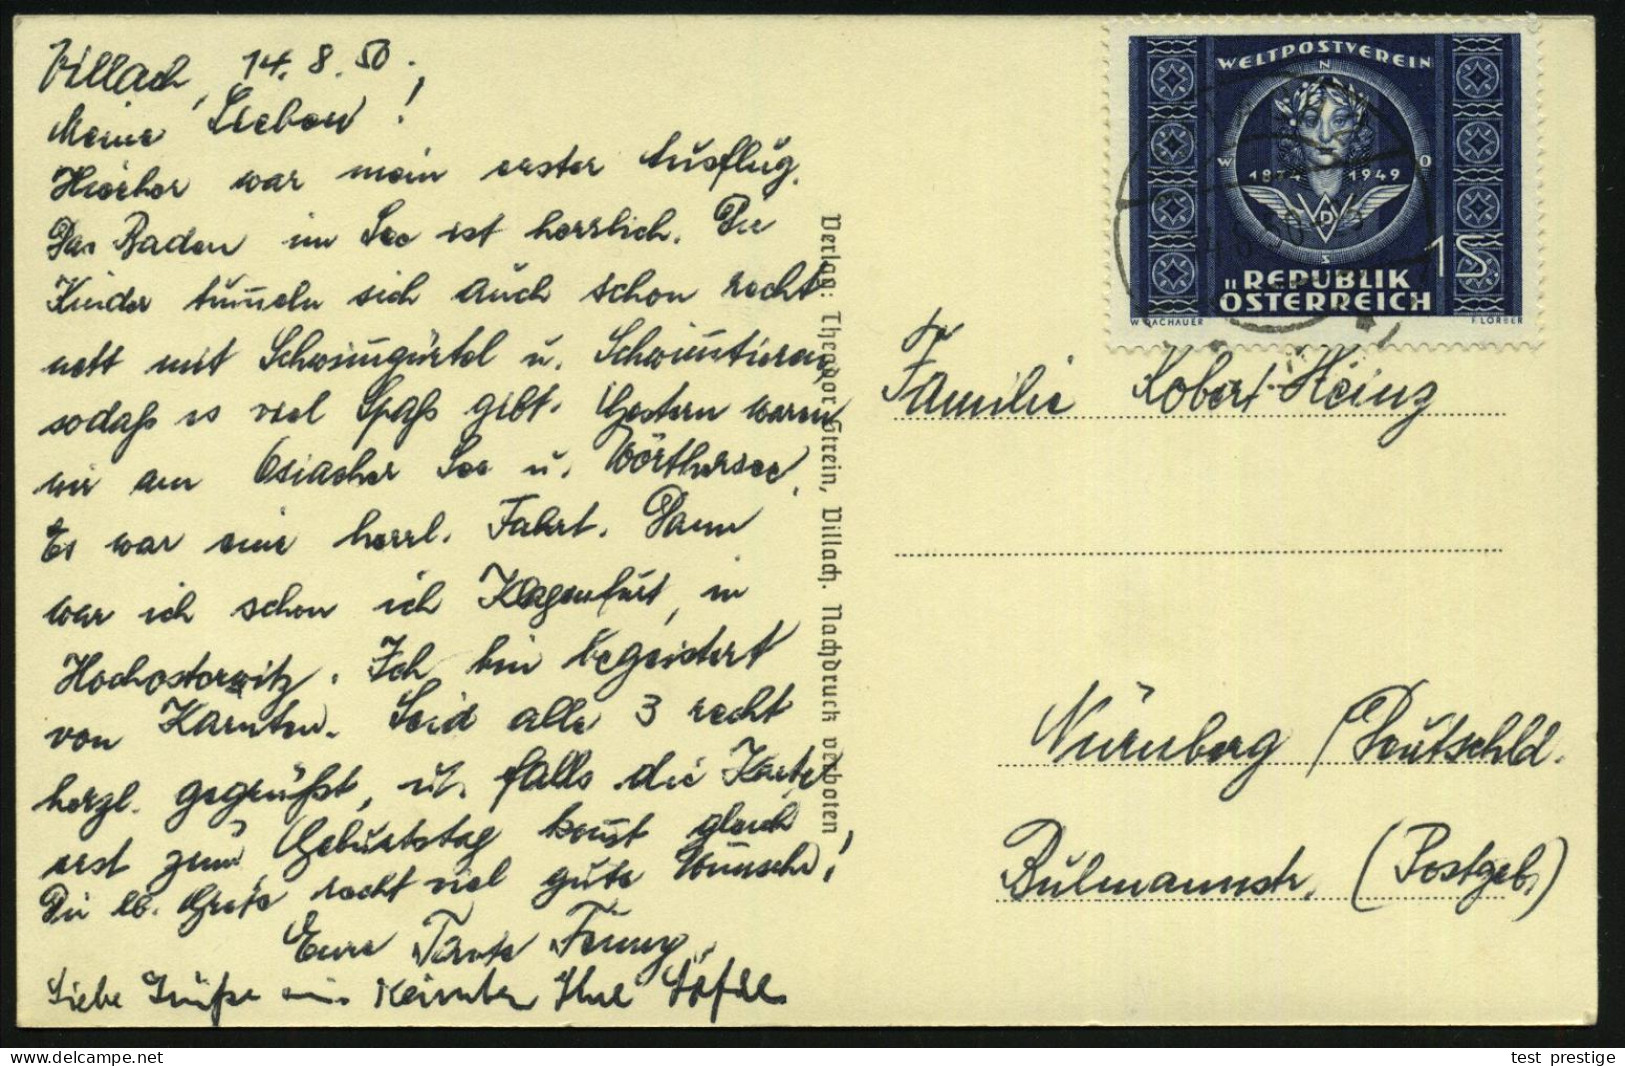 Villach, 14. 8. 50.
Meine Lieben!
Hierher war mein erster Ausflug.
Das Baden im See ist herrlich. Die
Kinder tum̄eln sich auch schon recht
nett mit Schwim̄gürtel u. Schwim̄tieren,
sodaß es viel Spaß gibt. Gestern waren
wir am Ossiacher See u. Wörthersee,
Es war eine herrl. Fahrt. Dann
war ich schon ich Klagenfurt, in
Hochosterwitz. Ich bin begeistert
von Kärnten. Seid alle 3 recht
herzl. gegrüßt, u. falls die Karte
erst zum Geburtstag kom̄t gleich
Dir lb. Grete recht viel gute Wünsche!
Eure Tante Fanny.
Liebe Grüße aus Kärnten Ihre
Verlag: Theodor Strein, Villach. Nachdruck verboten
WELTPOSTVEREIN
N
W O
1874 1949
S
1S
REPUBLIK
ÖSTERREICH
W. DACHAUER F. LORBER
Familie Robert Heinz
Nürnberg / Deutschld.
Bulmannstr. (Postgeb.)
test_prestige